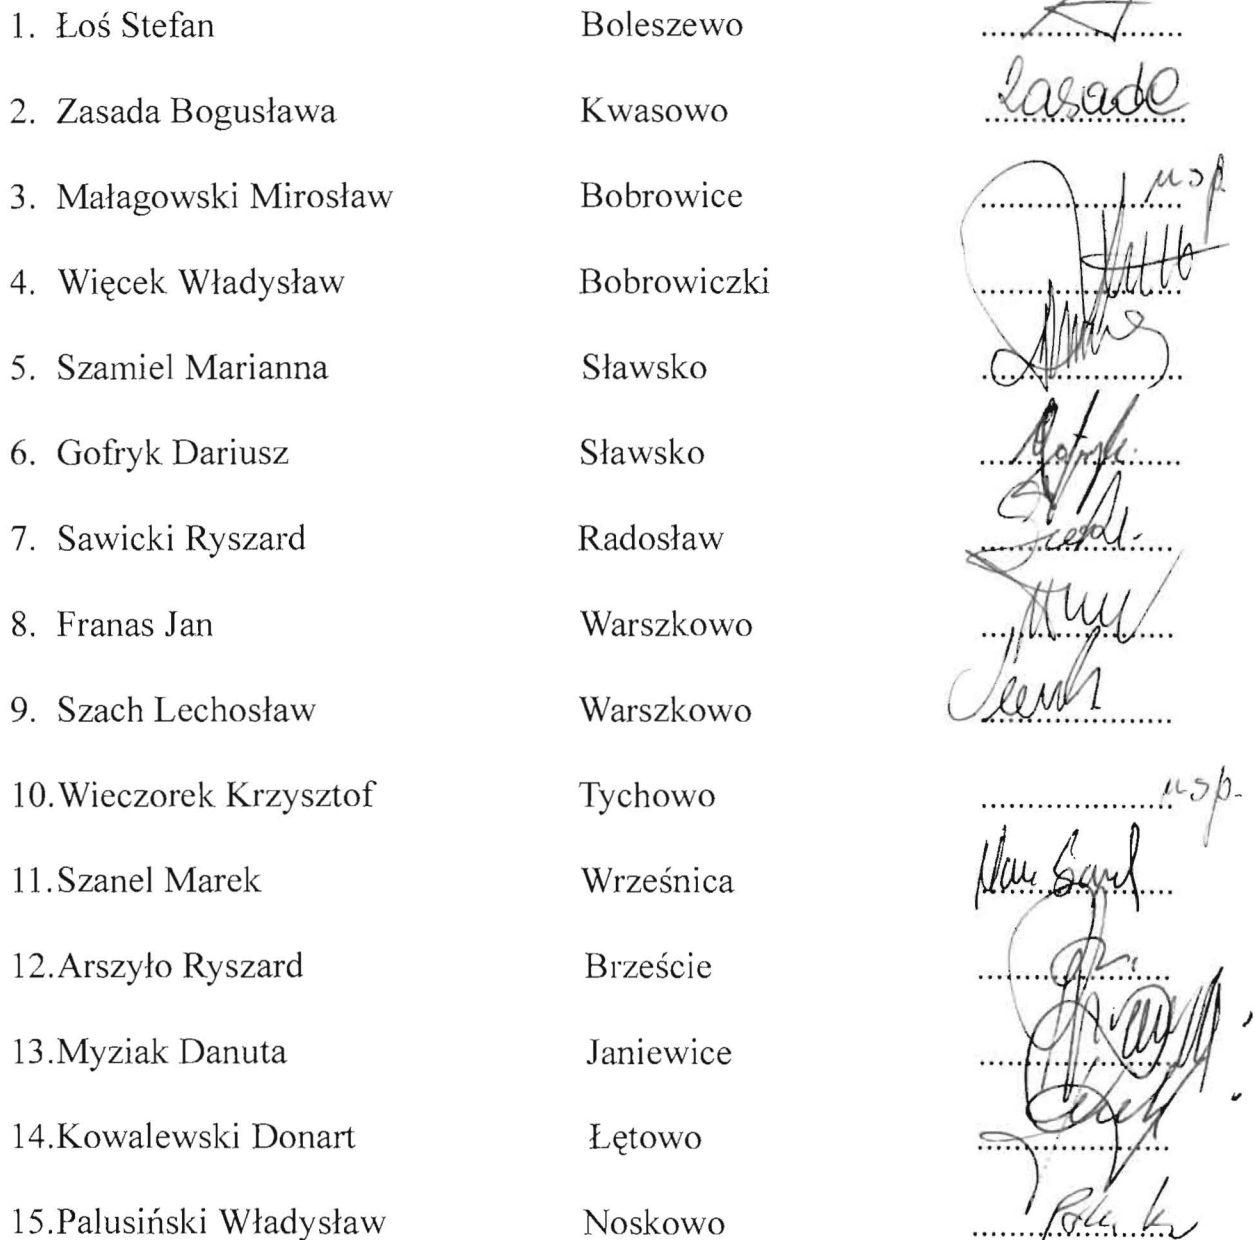 1. Łoś Stefan Boleszewo ....................
2. Zasada Bogusława Kwasowo Zasada
3. Małagowski Mirosław Bobrowice .................... usp.
4. Więcek Władysław Bobrowiczki ....................
5. Szamiel Marianna Sławsko ....................
6. Gofryk Dariusz Sławsko Gofryk
7. Sawicki Ryszard Radosław ....................
8. Franas Jan Warszkowo ....................
9. Szach Lechosław Warszkowo ....................
10. Wieczorek Krzysztof Tychowo .................... usp.
11. Szanel Marek Wrześnica ....................
12. Arszyło Ryszard Brzeście ....................
13. Myziak Danuta Janiewice ....................
14. Kowalewski Donart Łętowo ....................
15. Palusiński Władysław Noskowo ....................